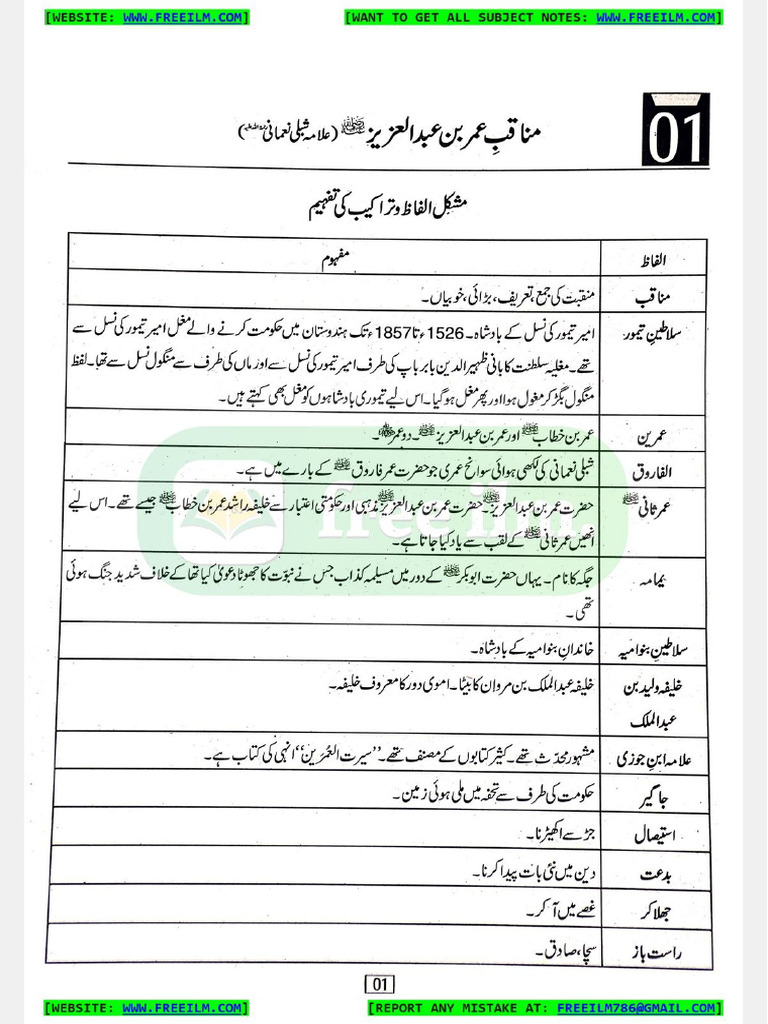 [WEBSITE: WWW.FREEILM.COM] [WANT TO GET ALL SUBJECT NOTES: WWW.FREEILM.COM]
01
مناقبِ عمر بن عبدالعزیزؒ (علامہ شبلی نعمانیؒ)
مشکل الفاظ و تراکیب کی تفہیم
الفاظ مفہوم
مناقب منقبت کی جمع، تعریف، بڑائی، خوبیاں۔
سلاطینِ تیمور امیر تیمور کی نسل کے بادشاہ۔ 1526ء تا 1857ء تک ہندوستان میں حکومت کرنے والے مغل امیر تیمور کی نسل سے
تھے۔ مغلیہ سلطنت کا بانی ظہیر الدین بابر باپ کی طرف امیر تیمور کی نسل سے اور ماں کی طرف سے منگول نسل سے تھا۔ لفظ
منگول بگڑ کر مغول ہوا اور پھر مغل ہو گیا۔ اس لیے تیموری بادشاہوں کو مغل بھی کہتے ہیں۔
عمرین عمر بن خطاب اور عمر بن عبدالعزیز۔ دو عمر۔
الفاروق شبلی نعمانی کی لکھی ہوئی سوانح عمری جو حضرت عمر فاروق کے بارے میں ہے۔
عمر ثانی حضرت عمر بن عبدالعزیز حضرت عمر بن عبدالعزیز مذہبی اور حکومتی اعتبار سے خلیفہ راشد عمر بن خطاب جیسے تھے۔ اس لیے
انھیں عمر ثانی کے لقب سے یاد کیا جاتا ہے۔
free ilm.
یمامہ جگہ کا نام۔ یہاں حضرت ابوبکر کے دور میں مسیلمہ کذاب جس نے نبوّت کا جھوٹا دعویٰ کیا تھا کے خلاف شدید جنگ ہوئی
تھی۔
سلاطینِ بنوامیہ خاندانِ بنوامیہ کے بادشاہ۔
خلیفہ ولید بن خلیفہ عبدالملک بن مروان کا بیٹا۔ اموی دور کا معروف خلیفہ۔
عبدالملک
علامہ ابنِ جوزی مشہور محدّث تھے۔ کثیر کتابوں کے مصنف تھے۔ ”سیرت العُمَرین“ انہی کی کتاب ہے۔
جاگیر حکومت کی طرف سے تحفہ میں ملی ہوئی زمین۔
استیصال جڑ سے اکھیڑنا۔
بدعت دین میں نئی بات پیدا کرنا۔
جھلا کر غصے میں آ کر۔
راست باز سچا، صادق۔
01
[WEBSITE: WWW.FREEILM.COM] [REPORT ANY MISTAKE AT: FREEILM786@GMAIL.COM]